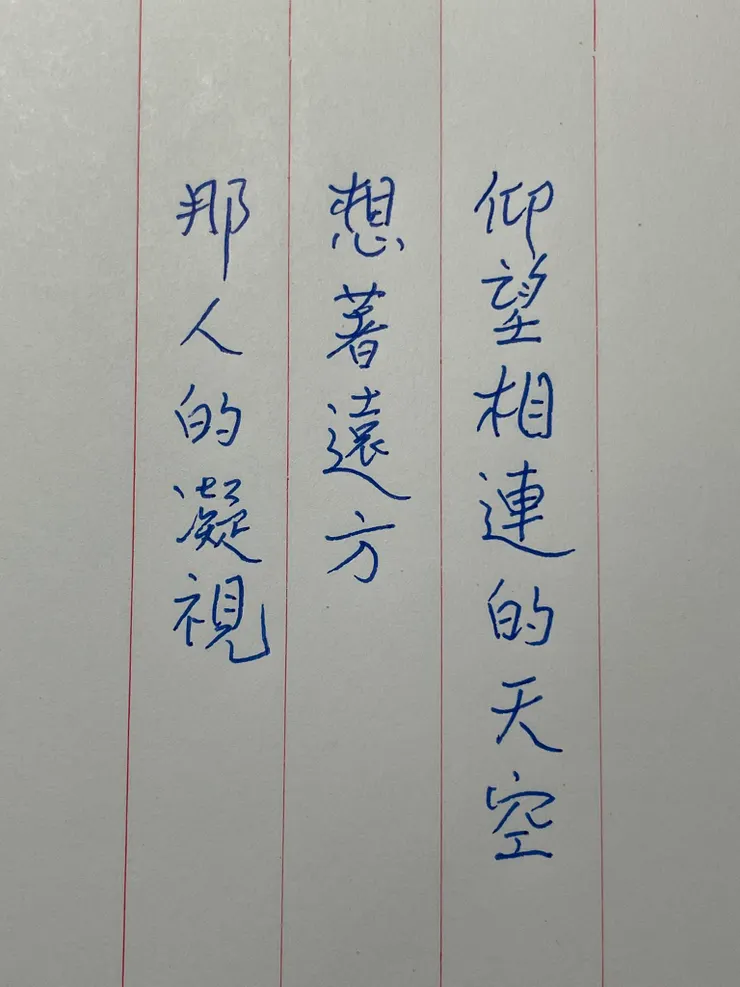 仰望相連的天空
想著遠方
那人的凝視